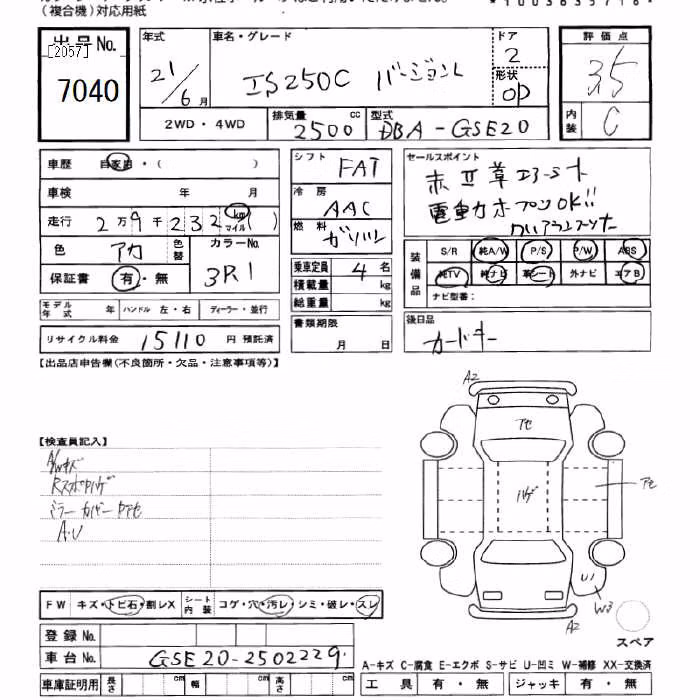 （複合機）対応用紙
出品No.
[2057]
7040
年式 21/6月
車名・グレード IS250C バージョンL
ドア 2
形状 OP
評価点 3.5
内装 C
2WD・4WD
排気量 2500 cc
型式 DBA-GSE20
車歴 自家用・（ ）
車検 年 月
走行 2万9千232 km マイル ( )
色 アカ 色替 カラーNo. 3R1
保証書 有・無
シフト FAT
冷房 AAC
燃料 ガソリン
乗車定員 4名
積載量 kg
総重量 kg
書類期限 月 日
セールスポイント
電動 OK!!
装備品
S/R 純A/W P/S P/W ABS
純TV 純ナビ 革シート 外ナビ エアB
ナビ型番：
モデル年式 年 ハンドル 左・右 ディーラー・並行
リサイクル料金 15110 円 預託済
後日品
カードキー
【出品店申告欄(不良箇所・欠品・注意事項等)】
【検査員記入】
A/Wキズ
ミラーカバー
A・U
A2
アセ
ハゲ
アセ
U1
W3
A2
スペア
FW キズ・トビ石・割レX シート内装 コゲ・穴・汚レ・シミ・破レ・スレ
登録No.
車台No. GSE20-2502229
車庫証明用 長さ cm 幅 cm 高さ cm
A-キズ C-腐食 E-エクボ S-サビ U-凹ミ W-補修 XX-交換済
工具 有・無 ジャッキ 有・無